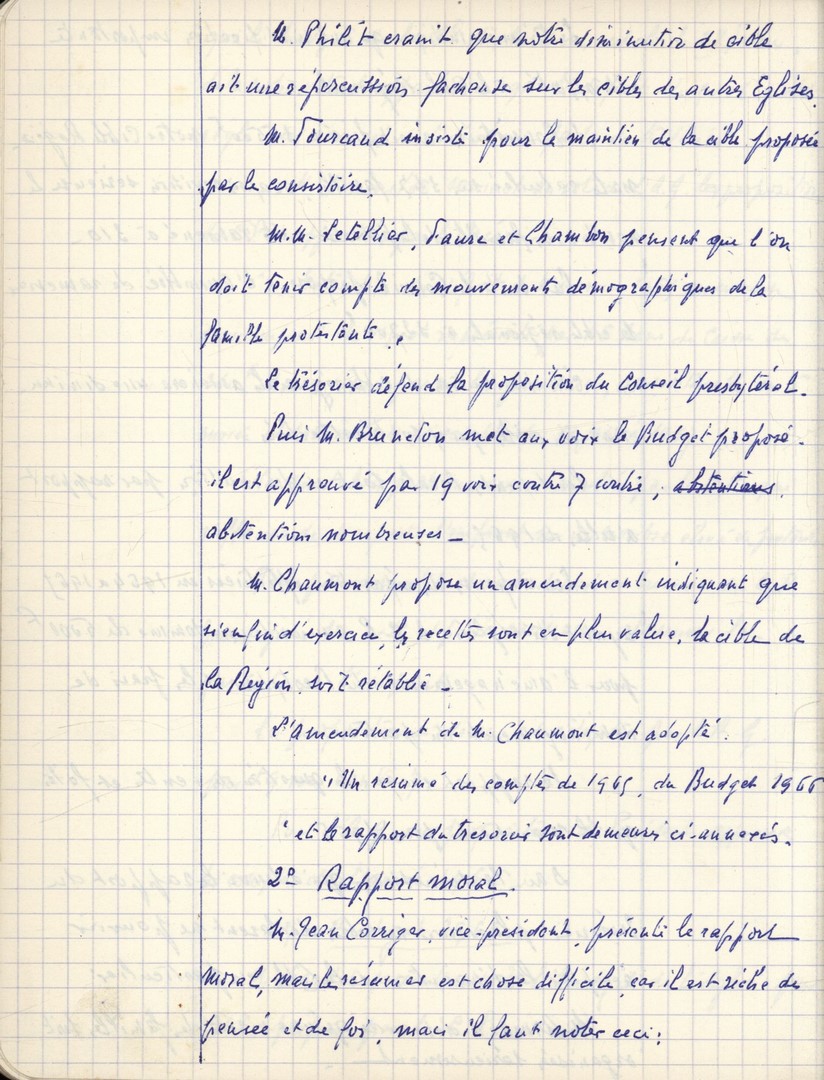 M. Philit craint que notre diminution de cible
ait une répercussion fâcheuse sur les cibles des autres Eglises.
M. Fourcaud insiste pour le maintien de la cible proposée
par le consistoire.
M.M. Letellier, Faure et Chambon pensent que l'on
doit tenir compte des mouvements démographiques de la
famille protestante.
Le trésorier défend la proposition du Conseil presbytéral.
Puis M. Bruneton met aux voix le Budget proposé.
il est approuvé par 19 voix contre 7 contre ; abstentions.
abstentions nombreuses _
M. Chaumont propose un amendement indiquant que
si en fin d'exercice, les recettes sont en plus value, la cible de
la Région soit rétablie _
L'amendement de M. Chaumont est adopté.
"Un résumé des comptes de 1965, du Budget 1966
" et le rapport du trésorier sont demeurés ci-annexés.
2º Rapport moral.
M. Jean Corriger, vice-président, présente le rapport
moral, mais le résumer est chose difficile car il est riche de
pensée et de foi, mais il faut noter ceci :